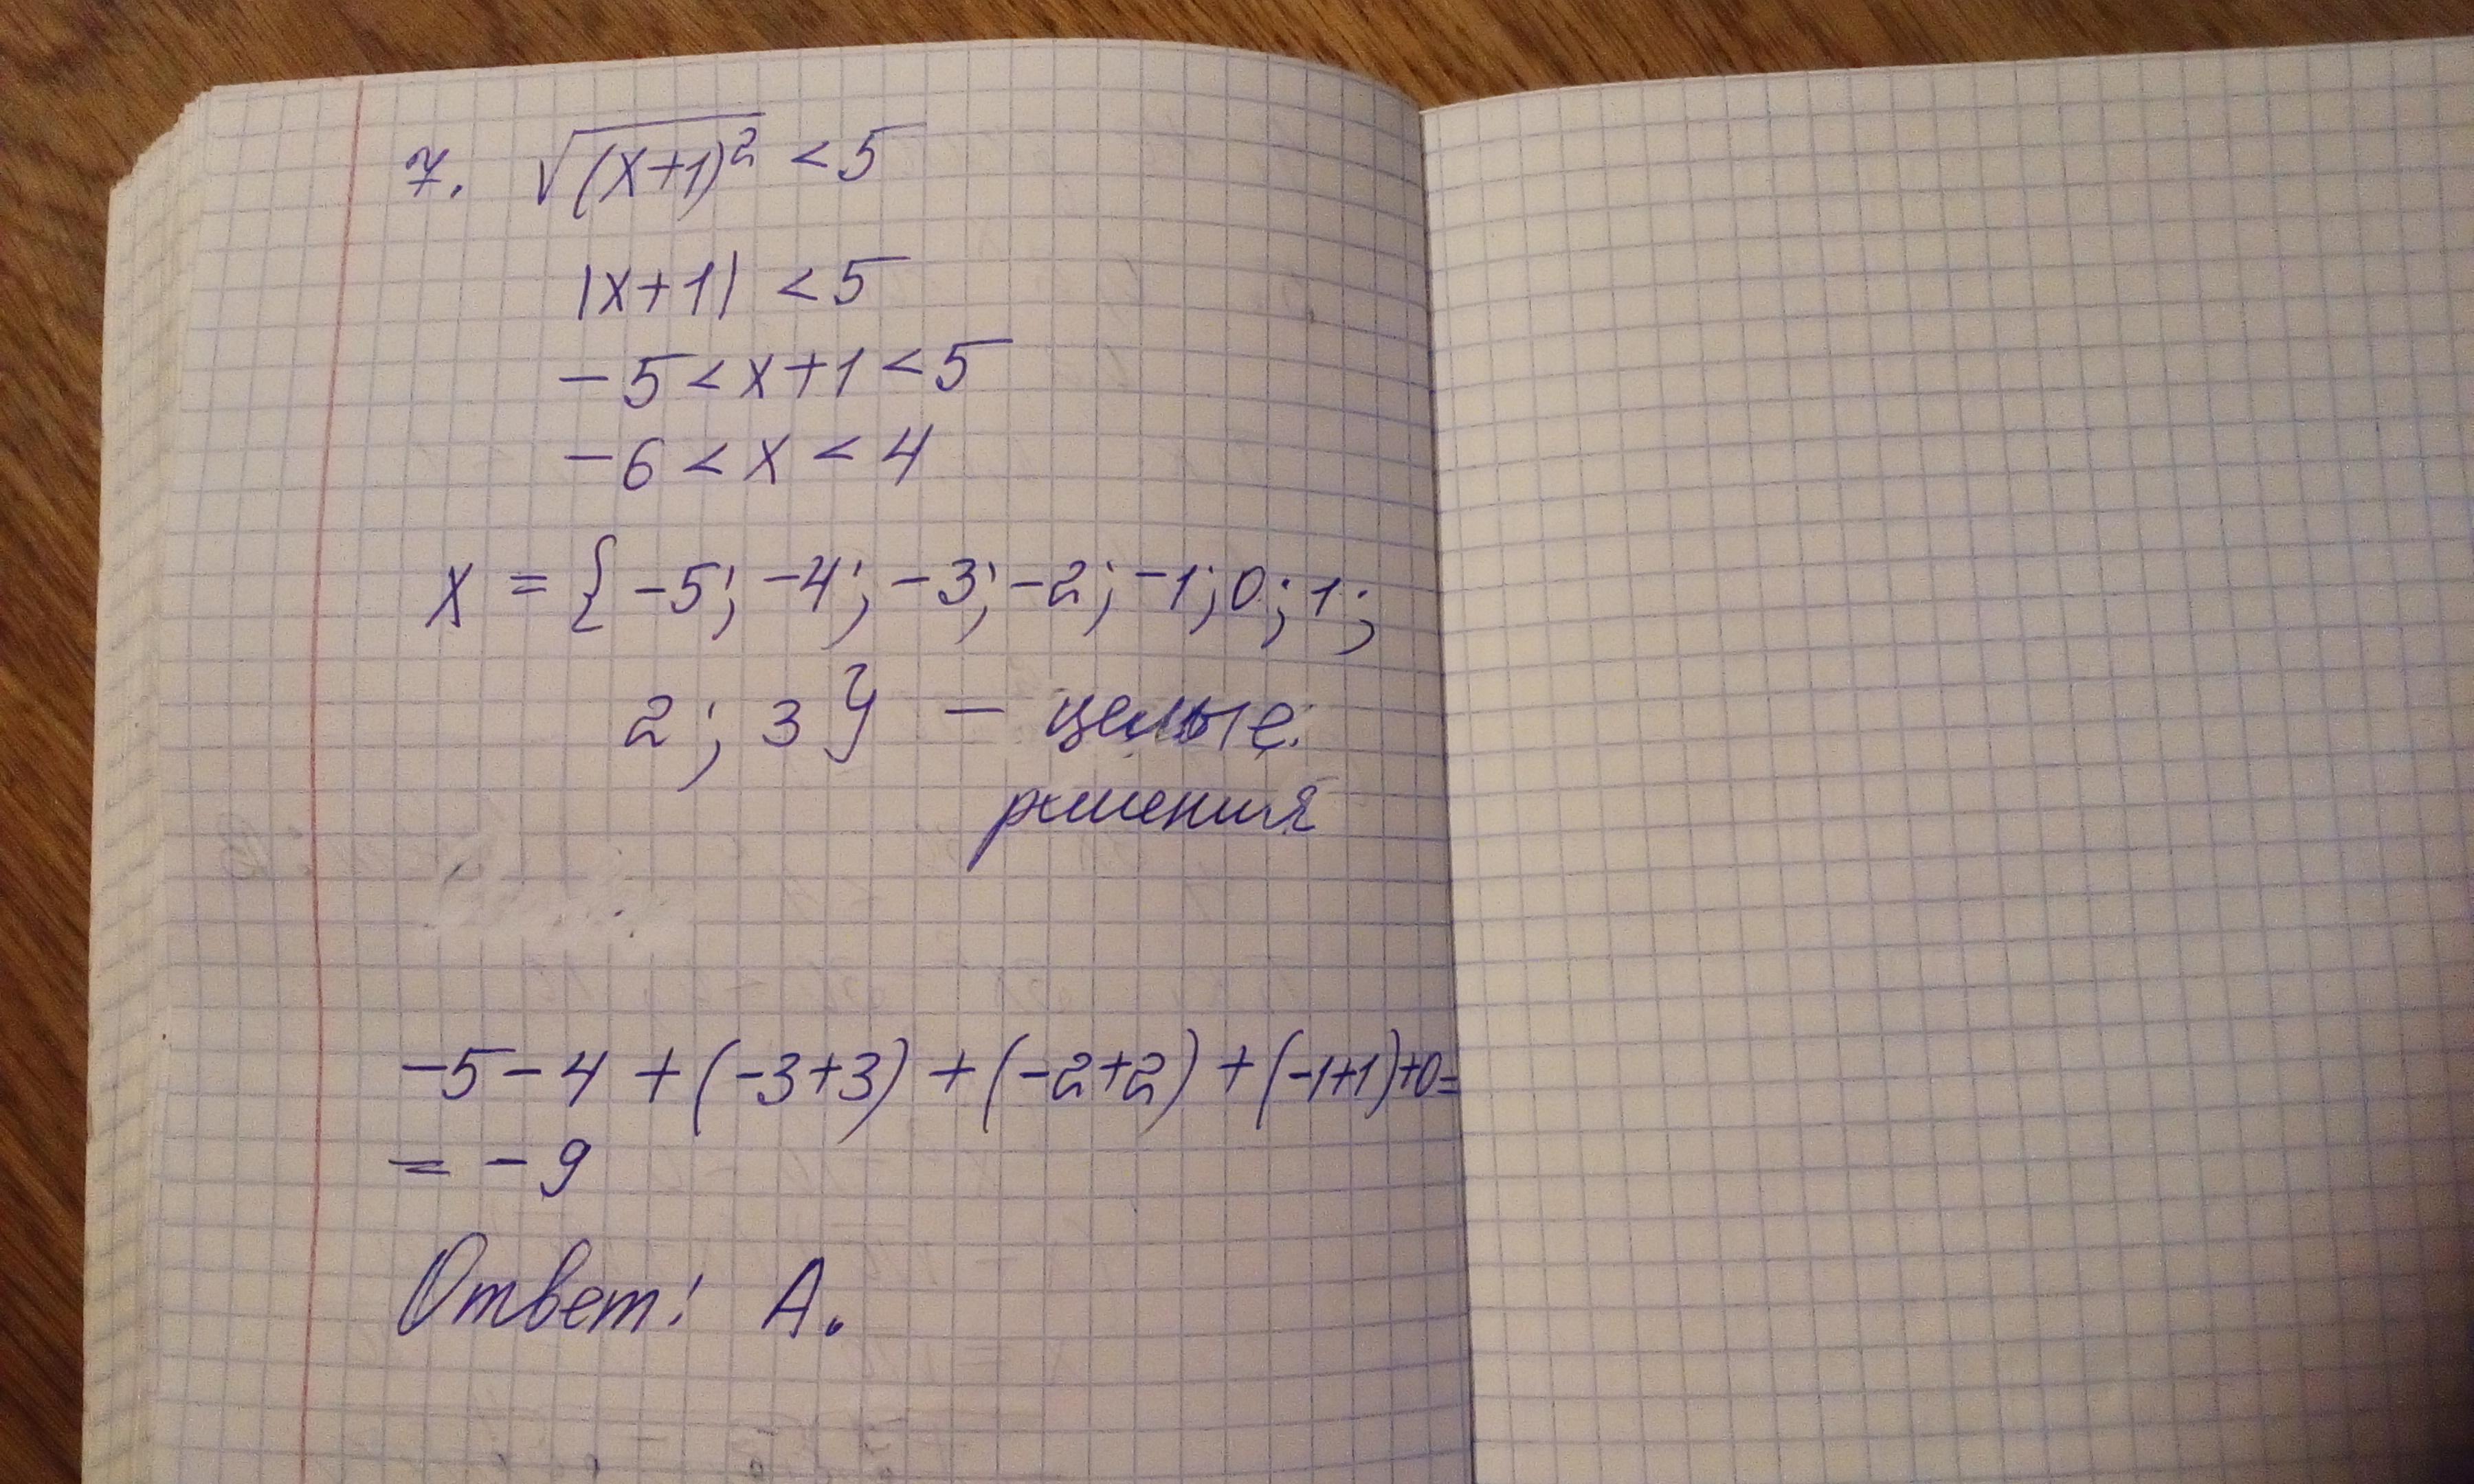 7. √(x+1)² < 5
|x+1| < 5
-5 < x+1 < 5
-6 < x < 4
x = {-5; -4; -3; -2; -1; 0; 1;
2; 3} — целые
решения
-5-4+(-3+3)+(-2+2)+(-1+1)+0=
= -9
Ответ: А.